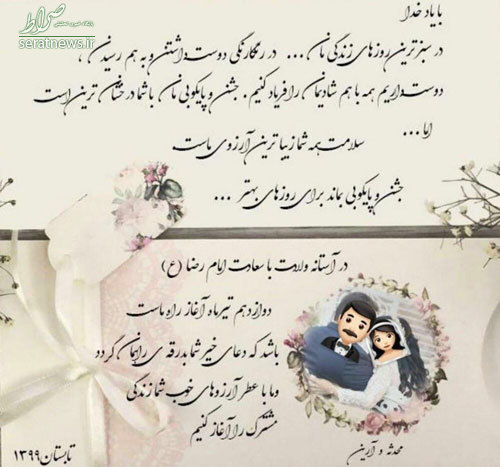 صراط
پایگاه خبری تحلیلی
seratnews.ir
با یاد خدا
در سبزترین روزهای زندگی مان ... در رنگارنگی دوست داشتن و به هم رسیدن ،
دوست داریم همه با هم شادیمان را فریاد کنیم . جشن و پایکوبی مان با شما درخشان ترین است
اما ...
سلامت همه شما زیباترین آرزوی ماست
جشن و پایکوبی بماند برای روزهای بهتر ...
در آستانه ولادت با سعادت امام رضا (ع)
دوازدهم تیرماه آغاز راه ماست
باشد که دعای خیر شما بدرقه ی راهمان گردد
و ما با عطر آرزوهای خوب شما زندگی
مشترک را آغاز کنیم
محدثه و آرین
تابستان ۱۳۹۹